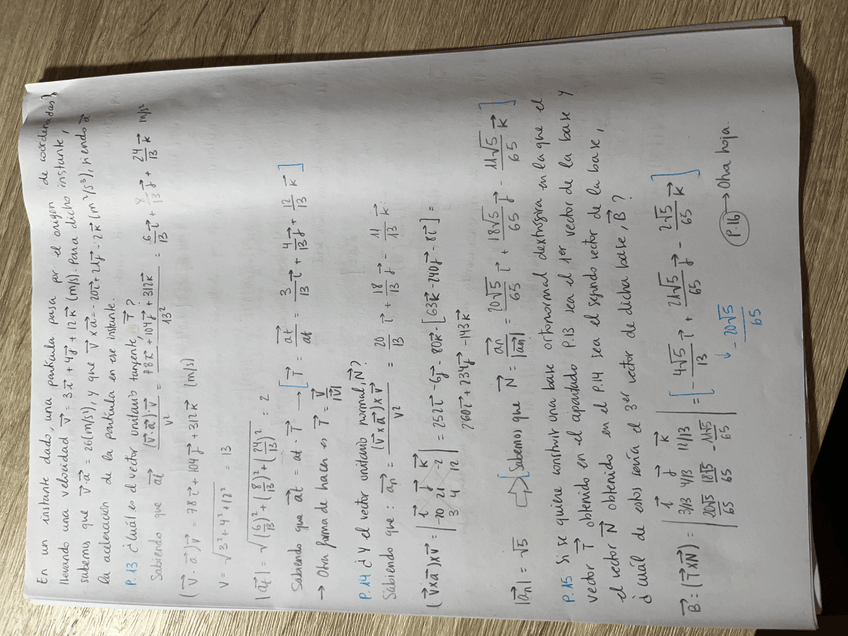 En un instante dado, una partícula pasa por el origen de coordenadas,
llevando una velocidad v⃗ = 3i⃗ + 4j⃗ + 12k⃗ (m/s). Para dicho instante,
sabemos que v⃗·a⃗ = 26 (m²/s³), y que v⃗ x a⃗ = -20i⃗ + 21j⃗ - 2k⃗ (m²/s³), siendo a⃗
la aceleración de la partícula en ese instante.
P.13 ¿Cuál es el vector unitario tangente, T⃗?
Sabiendo que a⃗t = (v⃗·a⃗)·v⃗ / v² = 78i⃗ + 104j⃗ + 312k⃗ / 13² = 6/13 i⃗ + 8/13 j⃗ + 24/13 k⃗ m/s²
(v⃗·a⃗)v⃗ = 78i⃗ + 104j⃗ + 312k⃗ (m/s)
v = √3² + 4² + 12² = 13
|a⃗t| = √(6/13)² + (8/13)² + (24/13)² = 2
Sabiendo que a⃗t = at · T⃗ → [T⃗ = a⃗t/at = 3/13 i⃗ + 4/13 j⃗ + 12/13 k⃗]
→ Otra forma de hacer es T⃗ = v⃗/|v⃗|
P.14 ¿Y el vector unitario normal, N⃗?
Sabiendo que: a⃗n = (v⃗xa⃗)xv⃗ / v² = 20/13 i⃗ + 18/13 j⃗ - 11/13 k⃗
(v⃗xa⃗)xv⃗ = | i⃗ j⃗ k⃗ / -20 21 -2 / 3 4 12 | = 252i⃗ - 6j⃗ - 80k⃗ - [63k⃗ - 240j⃗ - 8i⃗] =
260i⃗ + 234j⃗ - 143k⃗
|a⃗n| = √5 ⇒ [Sabemos que N⃗ = a⃗n/|a⃗n| = 20√5/65 i⃗ + 18√5/65 j⃗ - 11√5/65 k⃗]
P.15 Si se quiere construir una base ortonormal dextrogira en la que el
vector T⃗ obtenido en el apartado P.13 sea el 1er vector de la base y
el vector N⃗ obtenido en el P.14 sea el segundo vector de la base,
¿cuál de estos sería el 3er vector de dicha base, B⃗?
B⃗ = (T⃗xN⃗) = | i⃗ j⃗ k⃗ / 3/13 4/13 12/13 / 20√5/65 18√5/65 -11√5/65 | = [-4√5/13 i⃗ + 21√5/65 j⃗ - 2√5/65 k⃗]
↓ -20√5/65
P.16 → Otra hoja